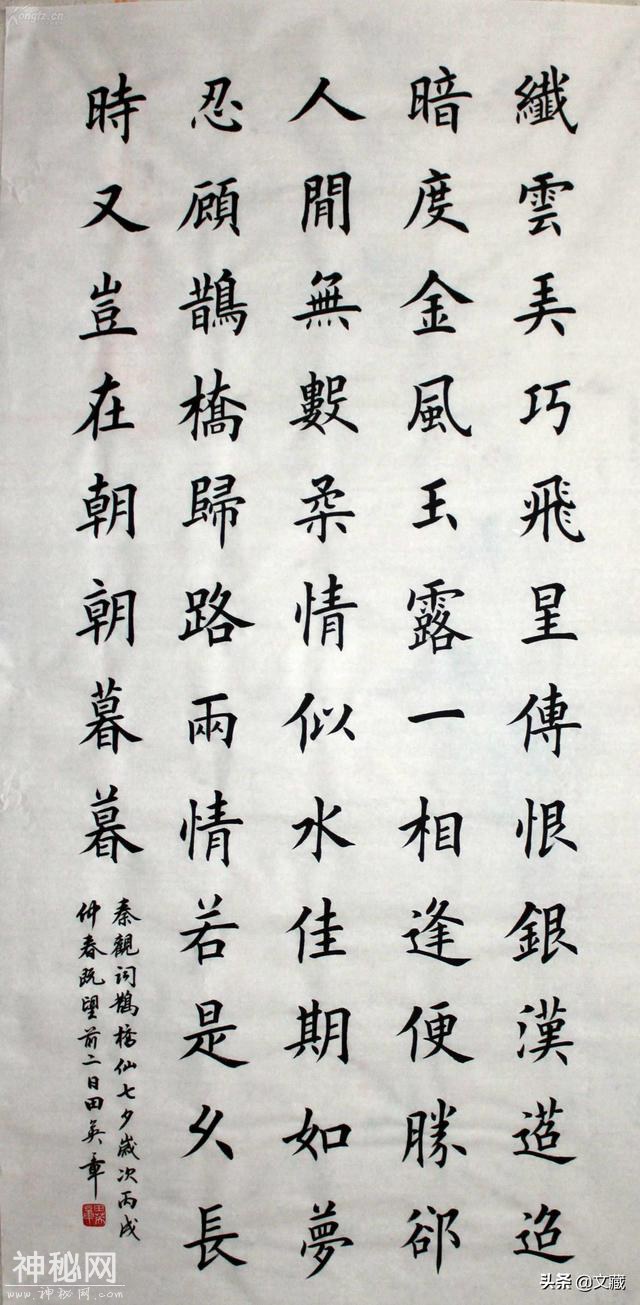 纖雲弄巧飛星傳恨銀漢迢迢
暗度金風玉露一相逢便勝郤
人閒無數柔情似水佳期如夢
忍顧鵲橋歸路兩情若是久長
時又豈在朝朝暮暮
秦觀詞鵲橋仙七夕歲次丙戌
仲春既望前二日田英章
神秘网
www.神秘网.com
头条 @文藏